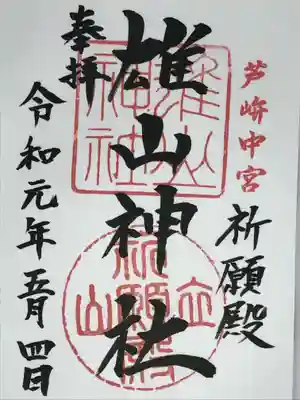 芦峅中宮
祈願殿
雄山神社
奉拝
令和元年五月四日
雄山神社
立山
祈願殿